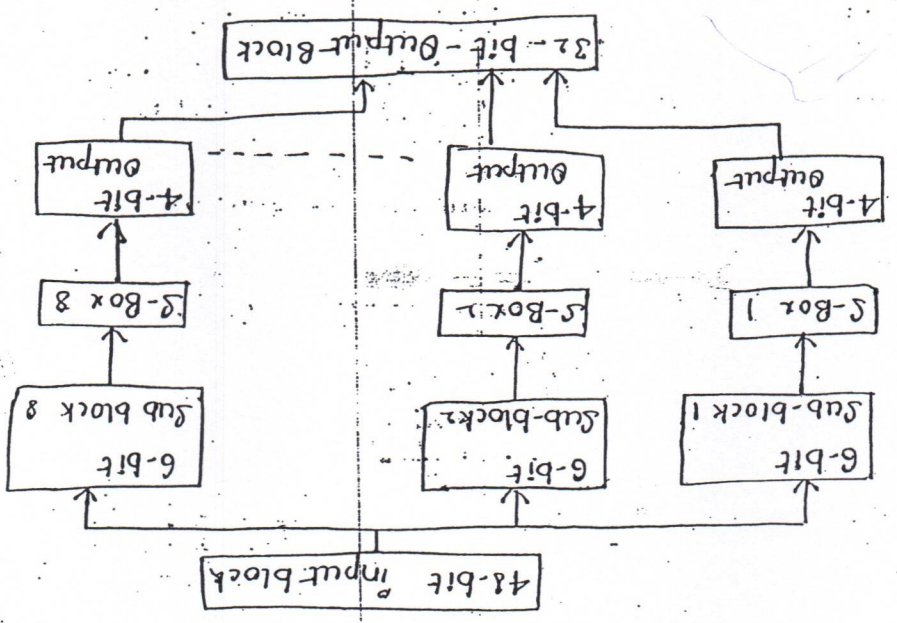 48-bit input block
6-bit
Sub-block 1
6-bit
Sub-block 2
6-bit
Sub block 8
S-Box 1
S-Box 2
S-Box 8
4-bit
Output
4-bit
Output
4-bit
Output
32-bit-Output-Block